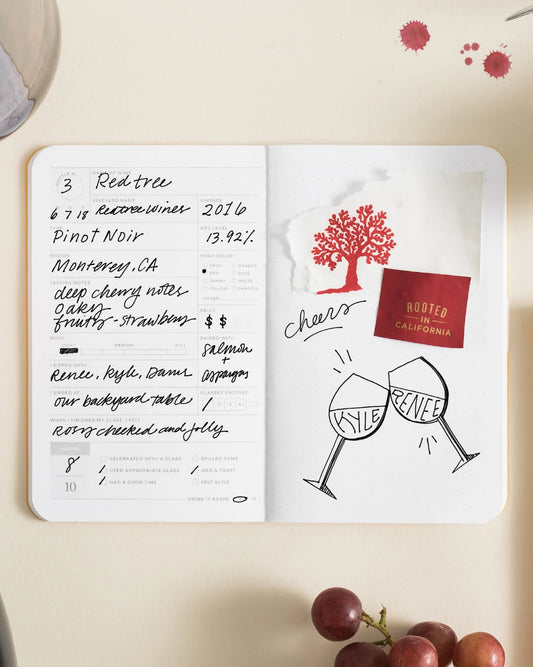 BOTTLE #
3
NAME OF WINE
Redtree
6 7 18
VINEYARD NAME
Redtree Wines
VINTAGE
2016
TYPE
Pinot Noir
ABV LEVEL
13.92%
REGION
Monterey, CA
WINE COLOR
GRAY ORANGE
RED ROSE
TAWNY WHITE
YELLOW SANGRIA
OTHER
TASTING NOTES
deep cherry notes
oaky
fruity - strawberry
PRICE
$ $
BODY
LIGHT MEDIUM FULL
PAIRED WITH
salmon
+
asparagus
I SIPPED WITH
Renee, Kyle,
I SIPPED AT
our backyard table
GLASSES ENJOYED
1 2 3 4+
WHEN I FINISHED MY GLASS, I FELT
Rosy cheeked and jolly
RATING
8
10
CELEBRATED WITH A GLASS
SPILLED SOME
USED APPROPRIATE GLASS
HAD A TOAST
HAD A GOOD TIME
FELT ALIVE
DRINK IT AGAIN
cheers
ROOTED
IN
CALIFORNIA
KYLE
RENEE